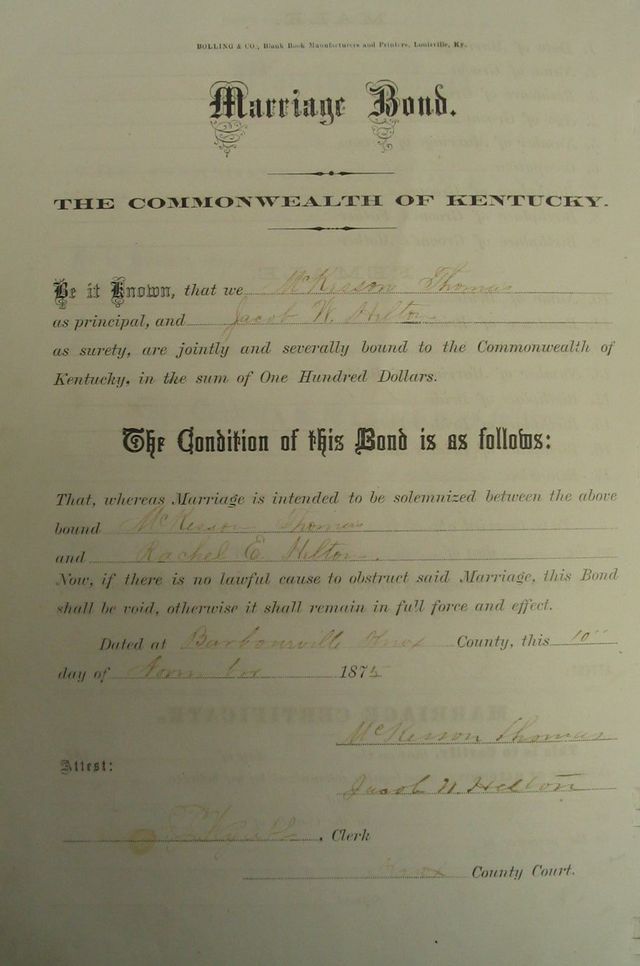 BOLLING & CO., Blank Book Manufacturers and Printers, Louisville, Ky.
Marriage Bond.
THE COMMONWEALTH OF KENTUCKY.
Be it Known, that we McKisson Thomas
as principal, and Jacob W. Hilton
as surety, are jointly and severally bound to the Commonwealth of
Kentucky, in the sum of One Hundred Dollars.
The Condition of this Bond is as follows:
That, whereas Marriage is intended to be solemnized between the above
bound McKisson Thomas
and Rachel E. Hilton.
Now, if there is no lawful cause to obstruct said Marriage, this Bond
shall be void, otherwise it shall remain in full force and effect.
Dated at Barbourville Knox County, this 10"
day of November 1875
McKisson Thomas
Attest:
Jacob W. Hilton
, Clerk
Knox County Court.